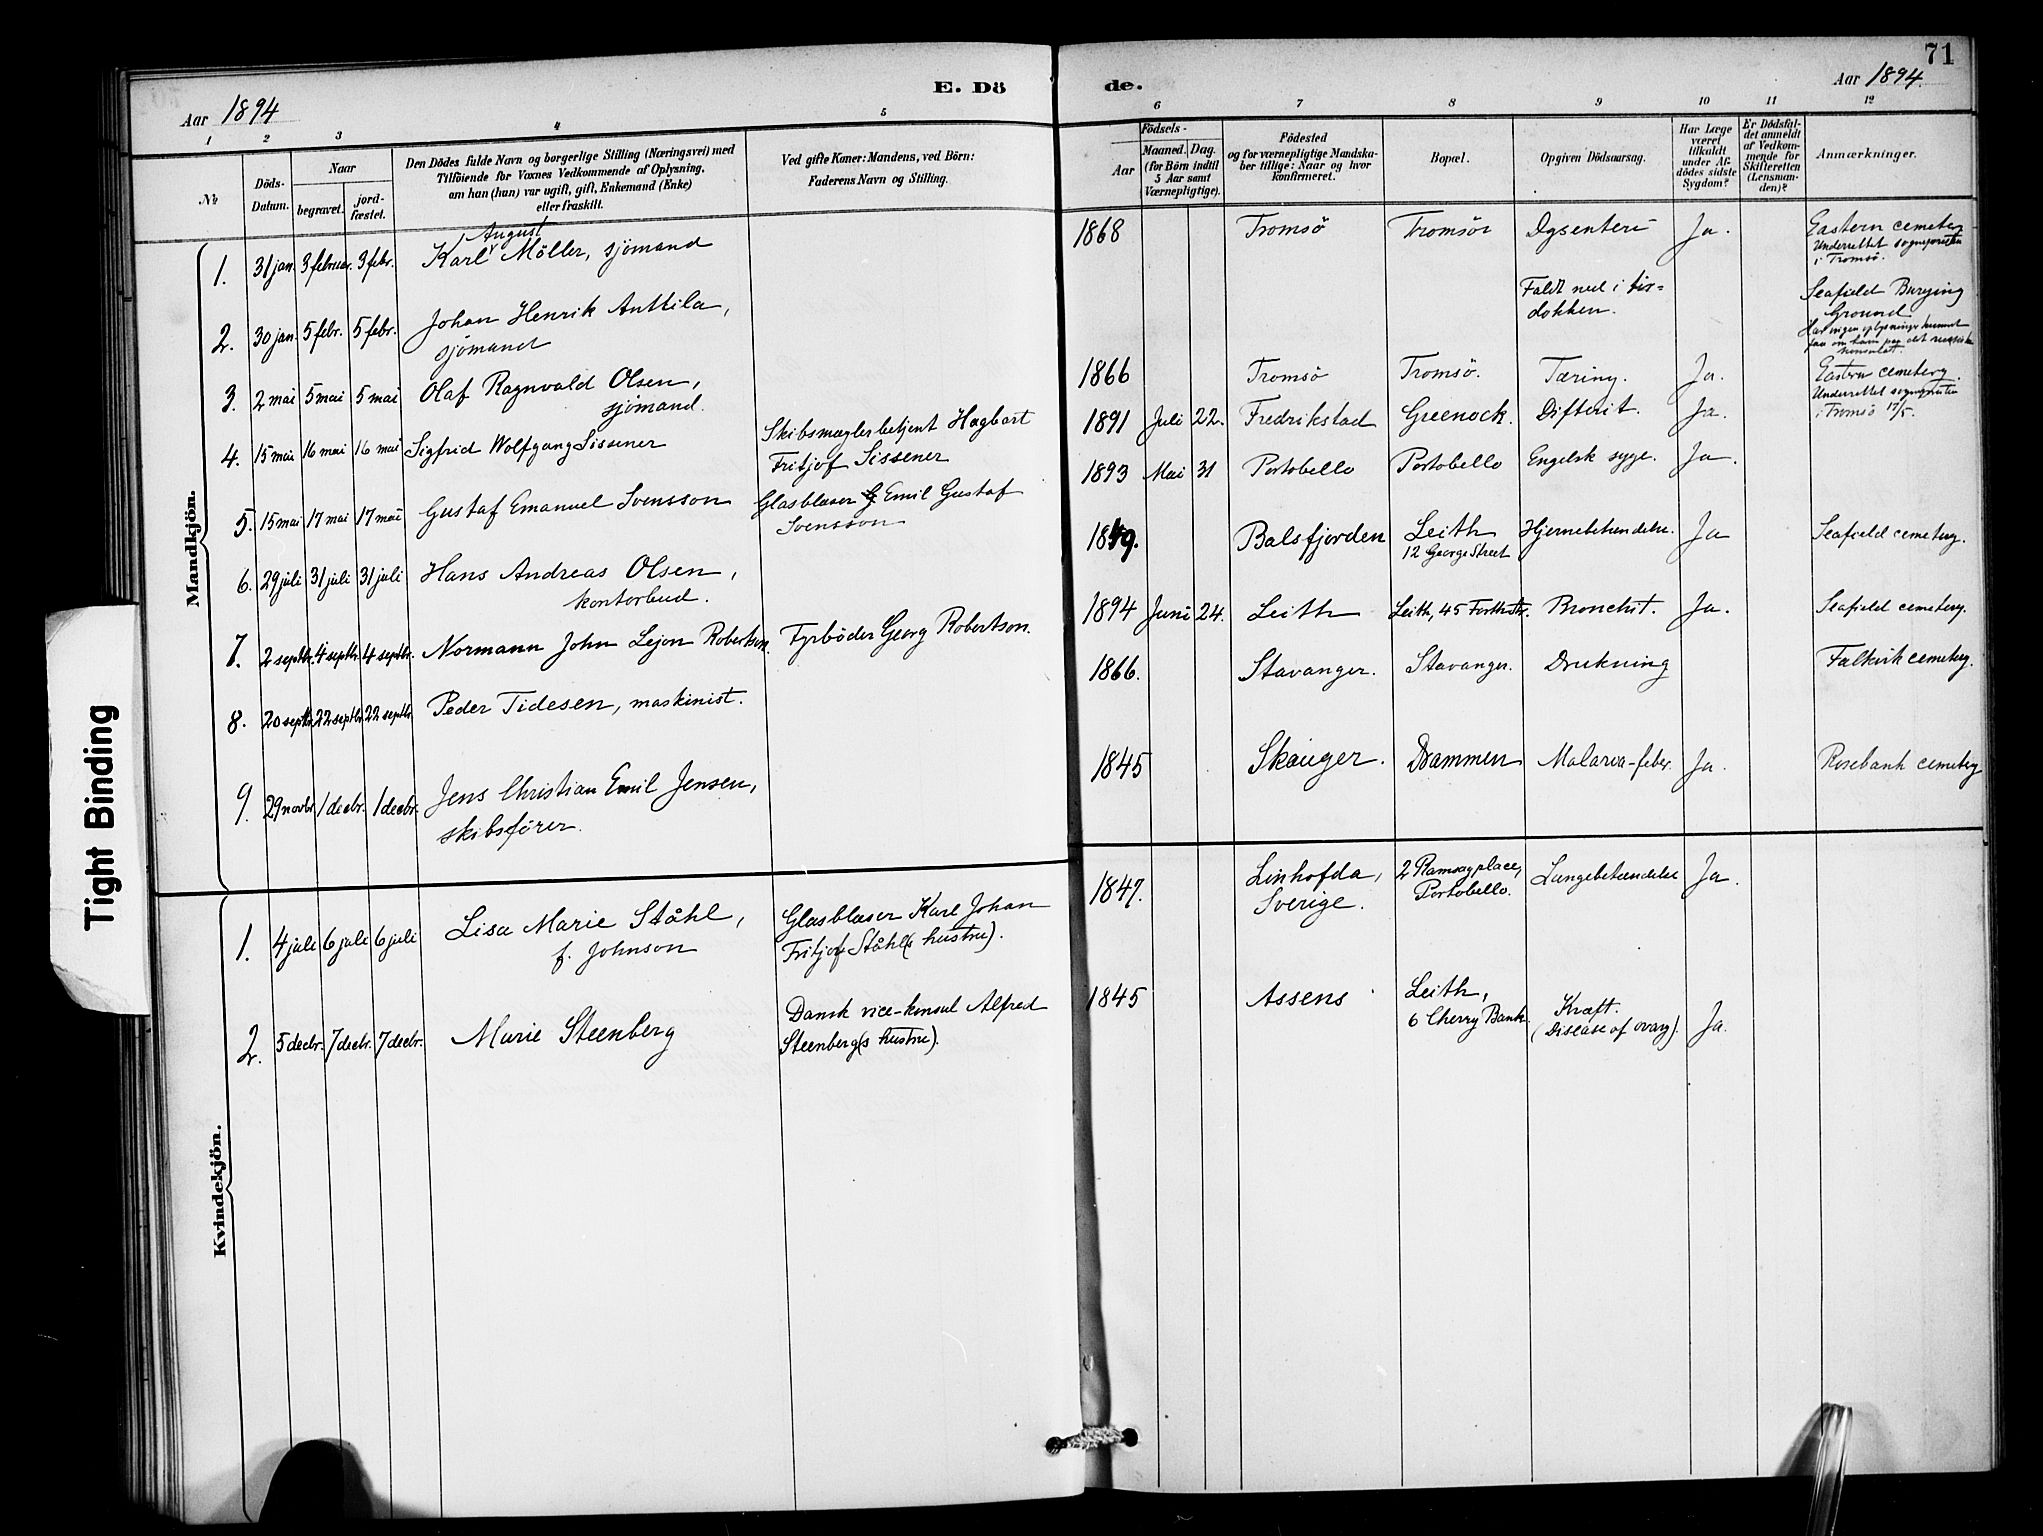 71
Aar 1894
E. Dö
de.
Aar 1894.
1
2
3
4
5
6
7
8
9
10
11
12
№
Döds-
Datum.
Naar
begravet.
jord-
fæstet.
Den Dödes fulde Navn og borgerlige Stilling (Næringsvei) med
Tilföiende for Voxnes Vedkommende af Oplysning,
om han (hun) var ugift, gift, Enkemand (Enke)
eller fraskilt.
Ved gifte Koner: Mandens, ved Börn:
Faderens Navn og Stilling.
Födsels-
Aar
Maaned.
Dag.
(for Börn indtil
5 Aar samt
Værnepligtige).
Födested
og for værnepligtige Mandska-
ber tillige: Naar og hvor
konfirmeret.
Bopæl.
Opgiven Dödsaarsag.
Har Læge
været
tilkaldt
under Af-
dödes sidste
Sygdom?
Er Dödsfal-
det anmeldt
af Vedkom-
mende for
Skifteretten
(Lensman-
den)?
Anmærkninger.
Mandkjön.
August
1. 31 jan. 3 februar. 3 febr. Karl Möller, sjömand
1868 Tromsö Tromsöe Dysenteri Ja. Eastern cemetery
Underrettet sognepresten
i Tromsö.
2. 30 jan. 5 febr. 5 febr. Johan Henrik Anttila,
sjömand
Faldt ned i tör-
dokken.
Seafield Burying
Ground
Har ingen oplysninger kunnet
faa om ham paa det russiske
konsulat.
3. 2 mai 5 mai 5 mai Olaf Ragnvald Olsen,
sjömand.
1866 Tromsö Tromsö. Tæring. Ja. Eastern cemetery.
Underrettet sognepresten
i Tromsö 17/5.
4. 15 mai 16 mai 16 mai Sigfrid Wolfgang Sissener
Skibsmæglerbetjent Hagbart
Fritjof Sissener
1891 Juli 22. Fredrikstad Greenock. Difterit. Ja.
5. 15 mai 17 mai 17 mai Gustaf Emanuel Svensson
Glasblaser Emil Gustaf
Svensson
1893 Mai 31 Portobello Portobello Engelsk syge. Ja.
6. 29 juli 31 juli 31 juli Hans Andreas Olsen,
kontorbud.
1849. Balsfjorden Leith Hjernebetændelse. Ja Seafield cemetery.
12 George Street
7. 2 septbr. 4 septbr. 4 septbr. Normann John Lejon Robertson. Fyrböder Georg Robertson.
1894 Juni 24. Leith Leith, 45 Forthstr. Bronchit. Ja. Seafield cemetery.
8. 20 septbr. 22 septbr. 22 septbr. Peder Tidesen, maskinist.
1866. Stavanger. Stavanger. Drukning Falkirk cemetery.
9. 29 novbr. 1 decbr. 1 decbr. Jens Christian Emil Jensen,
skibsförer.
1845 Skauger. Drammen Malaria-feber. Ja. Rosebank cemetery
Kvindekjön.
1. 4 juli 6 juli 6 juli Lisa Marie Ståhl,
f. Johnson
Glasblaser Karl Johan
Fritjof Ståhl(s hustru).
1847. Linhofda,
Sverige.
2 Ramsay place,
Portobello.
Lungebetændelse Ja.
2. 5 decbr. 7 decbr. 7 decbr. Marie Steenberg
Dansk vice-konsul Alfred
Steenberg(s hustru).
1845 Assens Leith,
6 Cherry Bank
Kræft.
(Disease of ovary). Ja.
Tight Binding